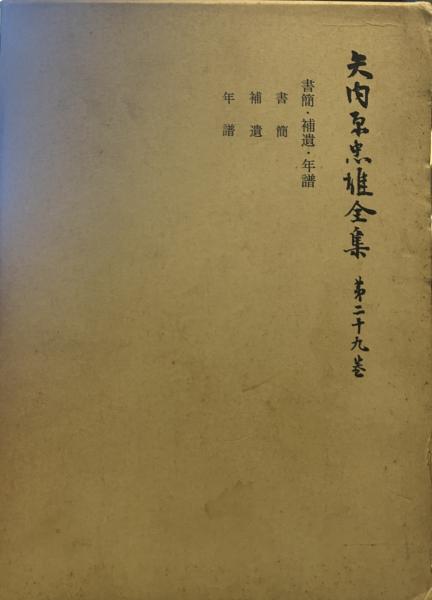 矢内原忠雄全集 第二十九巻
書簡・補遺・年譜
書簡
補遺
年譜